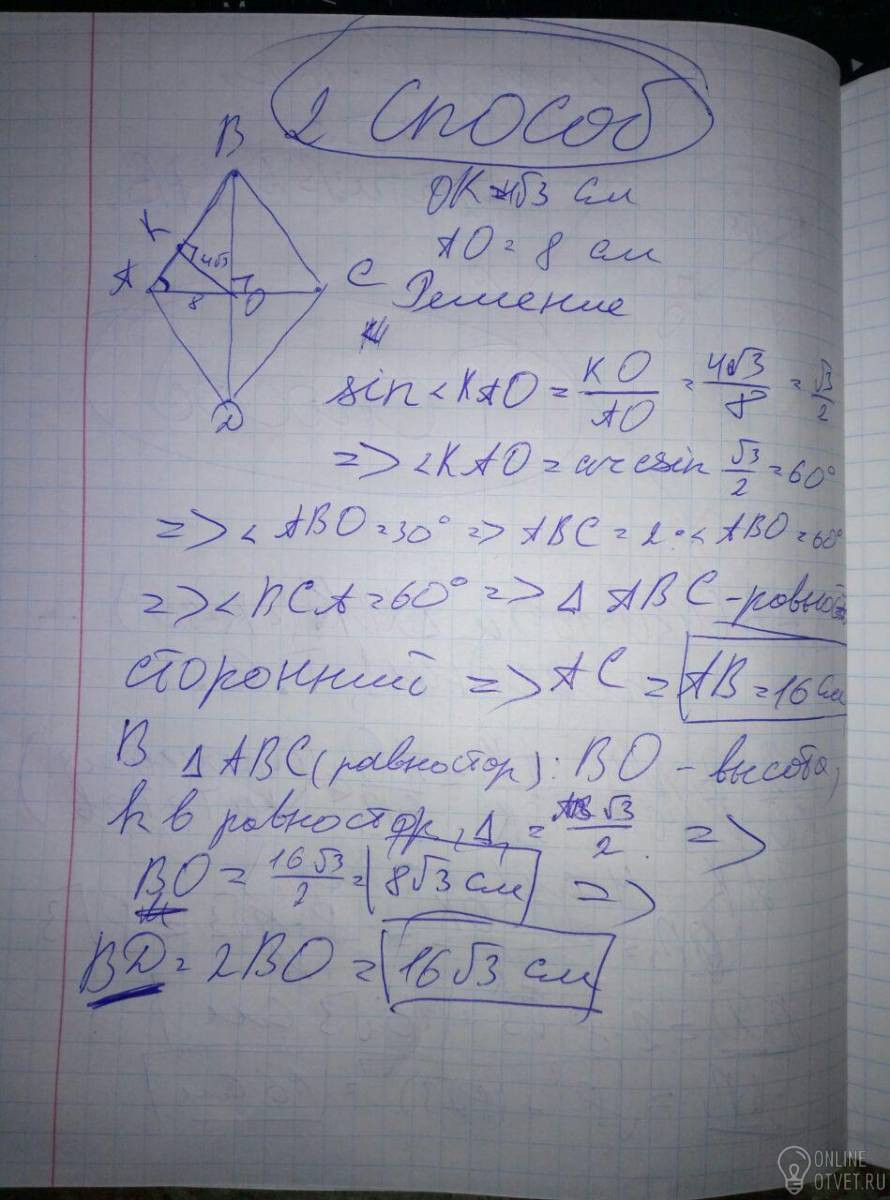 2 Способ
B
OK=4√3 см
K
4√3
AO = 8 см
A
8
O
C
Решение
D
sin <KAO = KO/AO = 4√3/8 = √3/2
=> <KAO = arcsin √3/2 = 60°
=> < ABO = 30° => ABC = 2·< ABO = 60°
=> < BCA = 60° => Δ ABC - равносто
сторонний => AC = AB = 16 см
В Δ ABC (равностор): BO - высота,
h в равностор. Δ, = AB√3/2 =>
BO = 16√3/2 = 8√3 см =>
BD = 2BO = 16√3 см
ONLINE
OTVET.RU